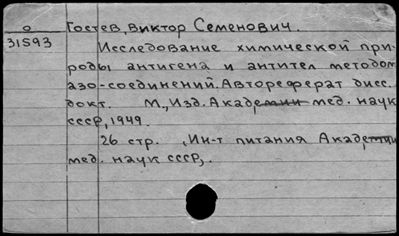 о Гостев, Виктор Семенович.
31593
Исследование химической при-
роды антигена и антител методом
азо-соединений. Автореферат дисс.
докт. М., Изд. Академии мед. наук
СССР, 1949.
26 стр. , Ин-т питания Академии
мед. наук СССР,.